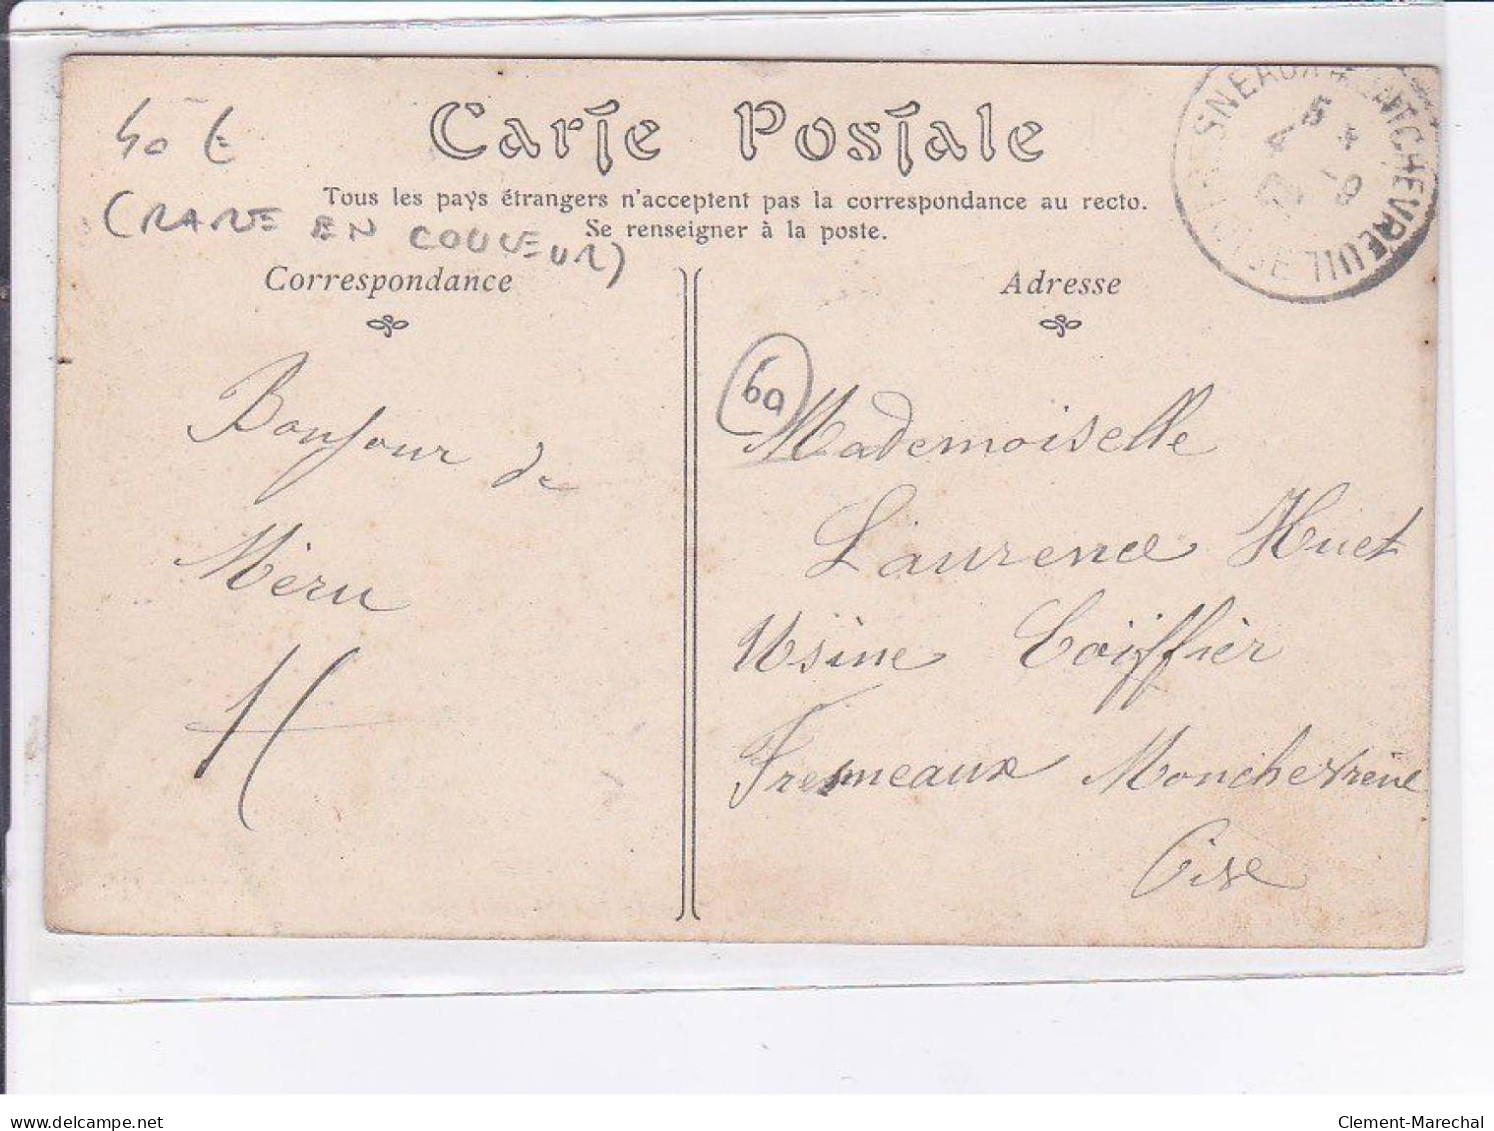 40 €
(RARE EN COULEUR)
Carte Postale
Tous les pays étrangers n'acceptent pas la correspondance au recto.
Se renseigner à la poste.
Correspondance
Adresse
FRESNEAUX MONTCHEVREUIL
OISE
60
Bonjour de
Méru
H
Mademoiselle
Laurence Huet
Usine Coiffier
Fresneaux
Oise
delcampe.net
Clement-Marechal